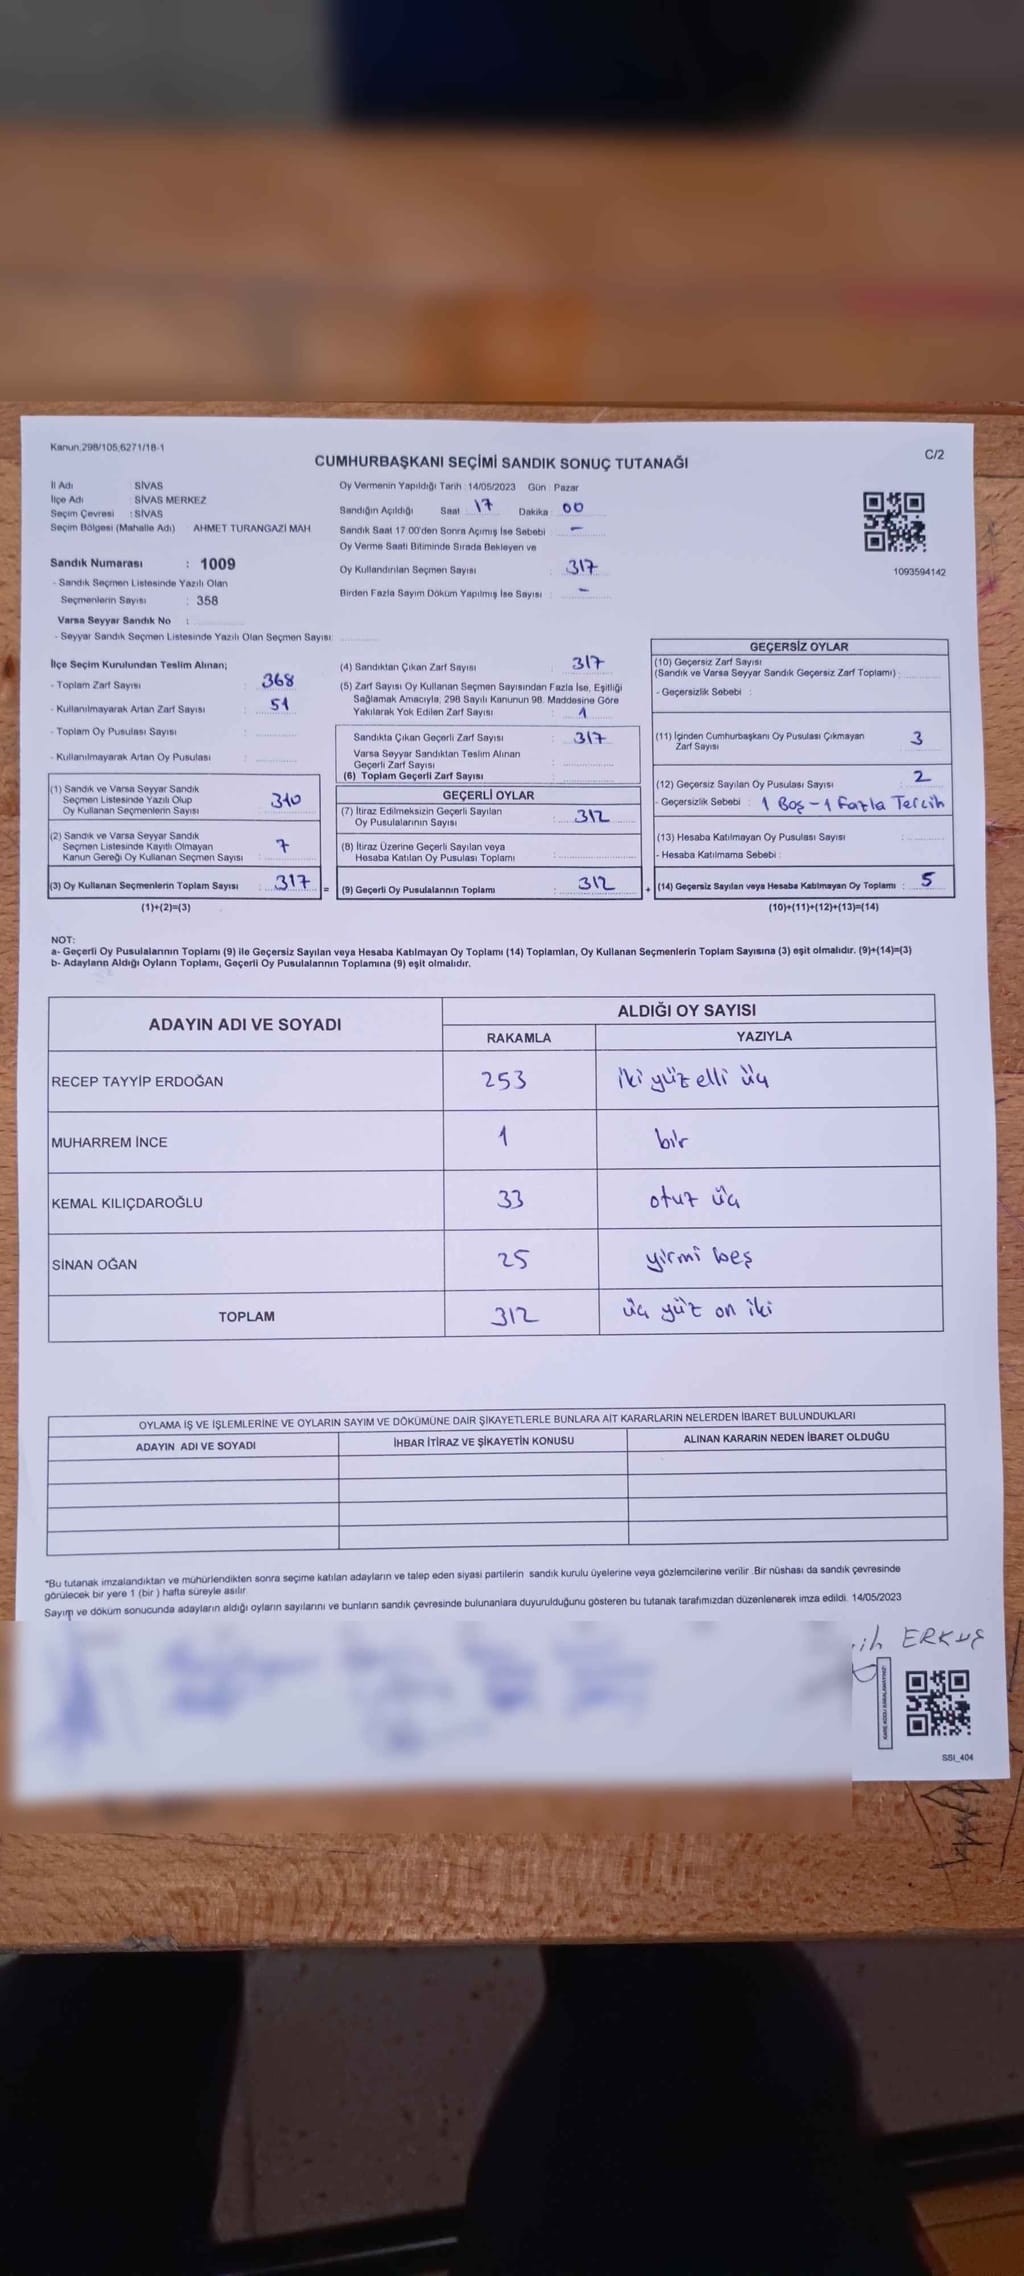 Kanun:298/105,6271/18-1
C/2
CUMHURBAŞKANI SEÇİMİ SANDIK SONUÇ TUTANAĞI
İl Adı : SİVAS
İlçe Adı : SİVAS MERKEZ
Seçim Çevresi : SİVAS
Seçim Bölgesi (Mahalle Adı) AHMET TURANGAZİ MAH
Sandık Numarası : 1009
- Sandık Seçmen Listesinde Yazılı Olan
Seçmenlerin Sayısı : 358
Varsa Seyyar Sandık No :
- Seyyar Sandık Seçmen Listesinde Yazılı Olan Seçmen Sayısı:
Oy Vermenin Yapıldığı Tarih : 14/05/2023 Gün : Pazar
Sandığın Açıldığı Saat : 17 Dakika : 00
Sandık Saat 17:00'den Sonra Açımış İse Sebebi : -
Oy Verme Saati Bitiminde Sırada Bekleyen ve
Oy Kullandırılan Seçmen Sayısı : 317
Birden Fazla Sayım Döküm Yapılmış İse Sayısı : -
1093594142
İlçe Seçim Kurulundan Teslim Alınan;
- Toplam Zarf Sayısı : 368
- Kullanılmayarak Artan Zarf Sayısı : 51
- Toplam Oy Pusulası Sayısı :
- Kullanılmayarak Artan Oy Pusulası :
(1) Sandık ve Varsa Seyyar Sandık
Seçmen Listesinde Yazılı Olup
Oy Kullanan Seçmenlerin Sayısı : 310
(2) Sandık ve Varsa Seyyar Sandık
Seçmen Listesinde Kayıtlı Olmayan
Kanun Gereği Oy Kullanan Seçmen Sayısı : 7
(3) Oy Kullanan Seçmenlerin Toplam Sayısı : 317 =
(1)+(2)=(3)
(4) Sandıktan Çıkan Zarf Sayısı : 317
(5) Zarf Sayısı Oy Kullanan Seçmen Sayısından Fazla İse, Eşitliği
Sağlamak Amacıyla, 298 Sayılı Kanunun 98. Maddesine Göre
Yakılarak Yok Edilen Zarf Sayısı : 1
Sandıkta Çıkan Geçerli Zarf Sayısı : 317
Varsa Seyyar Sandıktan Teslim Alınan
Geçerli Zarf Sayısı :
(6) Toplam Geçerli Zarf Sayısı :
GEÇERLİ OYLAR
(7) İtiraz Edilmeksizin Geçerli Sayılan
Oy Pusulalarının Sayısı : 312
(8) İtiraz Üzerine Geçerli Sayılan veya
Hesaba Katılan Oy Pusulası Toplamı :
(9) Geçerli Oy Pusulalarının Toplamı : 312 +
GEÇERSİZ OYLAR
(10) Geçersiz Zarf Sayısı
(Sandık ve Varsa Seyyar Sandık Geçersiz Zarf Toplamı) :
- Geçersizlik Sebebi :
(11) İçinden Cumhurbaşkanı Oy Pusulası Çıkmayan
Zarf Sayısı 3
(12) Geçersiz Sayılan Oy Pusulası Sayısı : 2
- Geçersizlik Sebebi : 1 Boş - 1 Fazla Tercih
(13) Hesaba Katılmayan Oy Pusulası Sayısı :
- Hesaba Katılmama Sebebi :
(14) Geçersiz Sayılan veya Hesaba Katılmayan Oy Toplamı : 5
(10)+(11)+(12)+(13)=(14)
NOT:
a- Geçerli Oy Pusulalarının Toplamı (9) ile Geçersiz Sayılan veya Hesaba Katılmayan Oy Toplamı (14) Toplamları, Oy Kullanan Seçmenlerin Toplam Sayısına (3) eşit olmalıdır. (9)+(14)=(3)
b- Adayların Aldığı Oyların Toplamı, Geçerli Oy Pusulalarının Toplamına (9) eşit olmalıdır.
ADAYIN ADI VE SOYADI
ALDIĞI OY SAYISI
RAKAMLA YAZIYLA
RECEP TAYYİP ERDOĞAN 253 iki yüz elli üç
MUHARREM İNCE 1 bir
KEMAL KILIÇDAROĞLU 33 otuz üç
SİNAN OĞAN 25 yirmi beş
TOPLAM 312 üç yüz on iki
OYLAMA İŞ VE İŞLEMLERİNE VE OYLARIN SAYIM VE DÖKÜMÜNE DAİR ŞİKAYETLERLE BUNLARA AİT KARARLARIN NELERDEN İBARET BULUNDUKLARI
ADAYIN ADI VE SOYADI İHBAR İTİRAZ VE ŞİKAYETİN KONUSU ALINAN KARARIN NEDEN İBARET OLDUĞU
*Bu tutanak imzalandıktan ve mühürlendikten sonra seçime katılan adayların ve talep eden siyasi partilerin sandık kurulu üyelerine veya gözlemcilerine verilir .Bir nüshası da sandık çevresinde
görülecek bir yere 1 (bir ) hafta süreyle asılır.
Sayım ve döküm sonucunda adayların aldığı oyların sayılarını ve bunların sandık çevresinde bulunanlara duyurulduğunu gösteren bu tutanak tarafımızdan düzenlenerek imza edildi. 14/05/2023
ERKUŞ
SSI_404